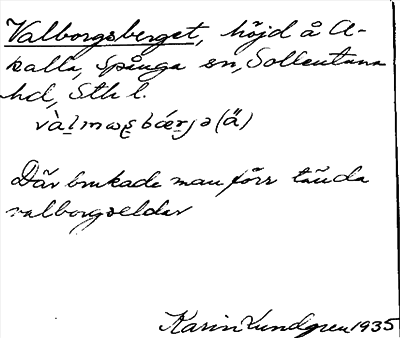 Valborgsberget, höjd å A-
kalla, Spånga sn, Sollentuna
hd, Sth l.
(ä)
Där brukade man förr tända
valborgseldar
Karin Lundgren 1935